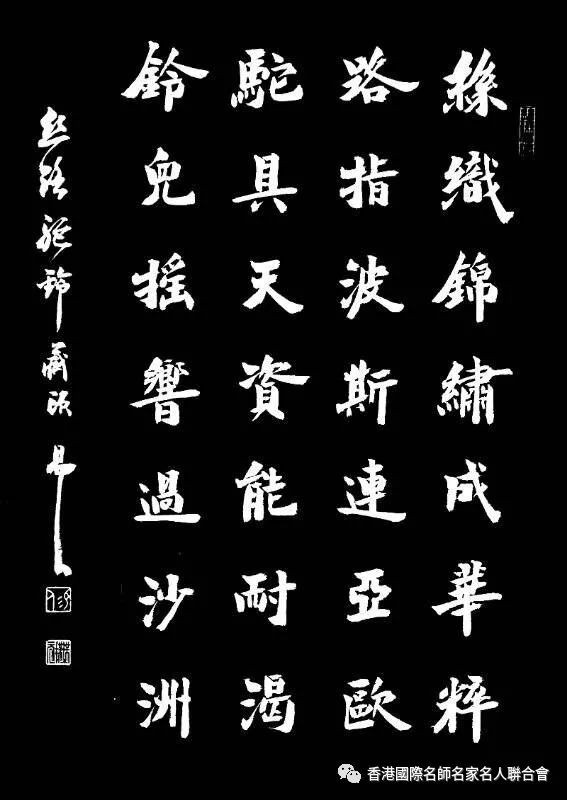 絲織錦繡成華粹
路指波斯連亞歐
駝具天資能耐渴
鈴兒搖響過沙洲
丝路駝鈴藏頭
香港國際名師名家名人聯合會